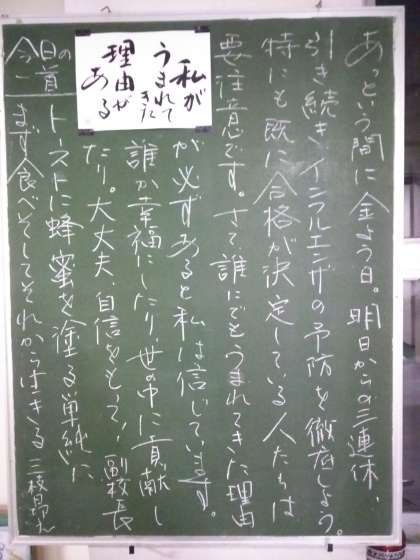 あっという間に金よう日。明日からの三連休、
引き続き、インフルエンザの予防を徹底しよう。
特にも既に合格が決定している人たちは
要注意です。さて誰にでもうまれてきた理由
が必ずあると私は信じています。
誰か幸福にしたり、世の中に貢献し
たり。大丈夫、自信をもって! 副校長
私が
うまれて
きた
理由が
ある
今日の一首
トーストに蜂蜜を塗る単純に
まず食べそしてそれから生きる 三枝昂之